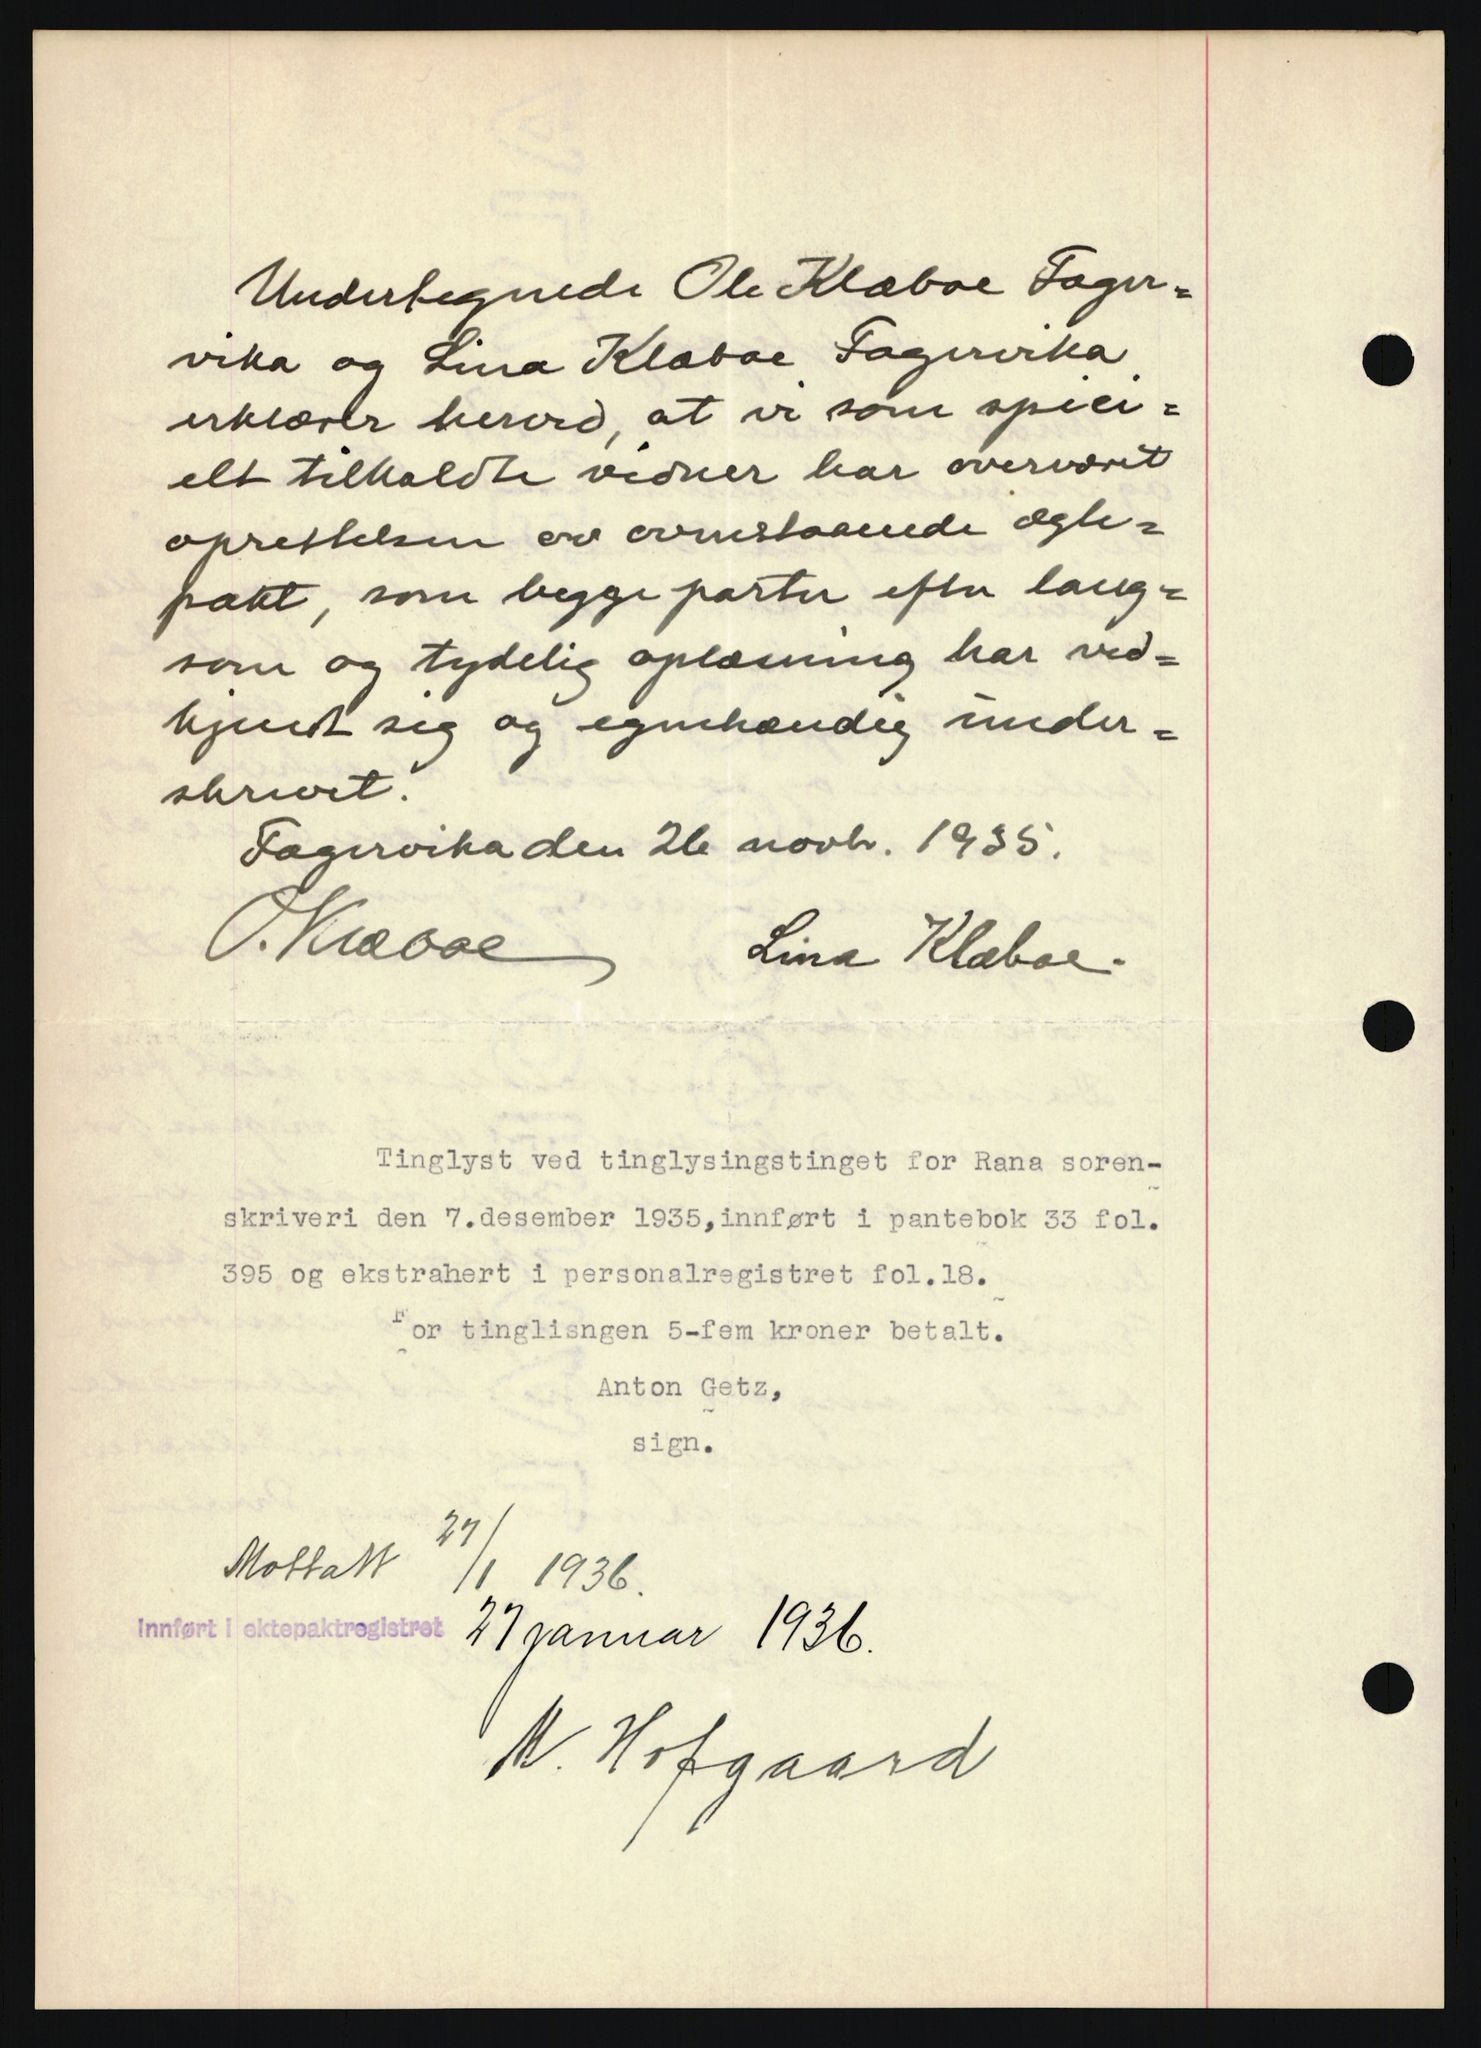 Undertegnede Ole Klæboe Fager=
vika og Lina Klæboe Fagervika
erklærer herved, at vi som speci=
elt tilkaldte vidner har overværet
oprettelsen av ovenstaaende ægte=
pakt, som begge parter efter lang=
som og tydelig oplæsning har ved=
kjendt sig og egenhændig under=
skrevet.
Fagervika den 26 novbr. 1935.
O. Klæboe Lina Klæboe.
Tinglyst ved tinglysingstinget for Rana soren-
skriveri den 7.desember 1935,innført i pantebok 33 fol.
395 og ekstrahert i personalregistret fol.18.
For tinglisngen 5-fem kroner betalt.
Anton Getz,
sign.
Mottatt 27/1 1936.
Innført i ektepaktregistret 27 januar 1936.
M. Hofgaard